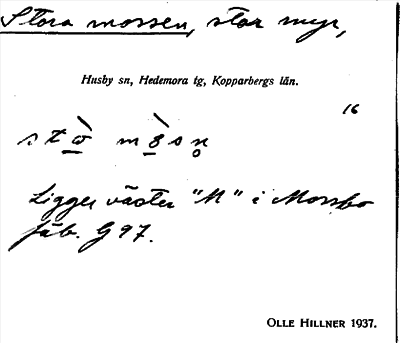 Stora mossen, stor myr,
Husby sn, Hedemora tg, Kopparbergs län.
16
Ligger väster "M" i Morsbo
fäb. G 97.
OLLE HILLNER 1937.